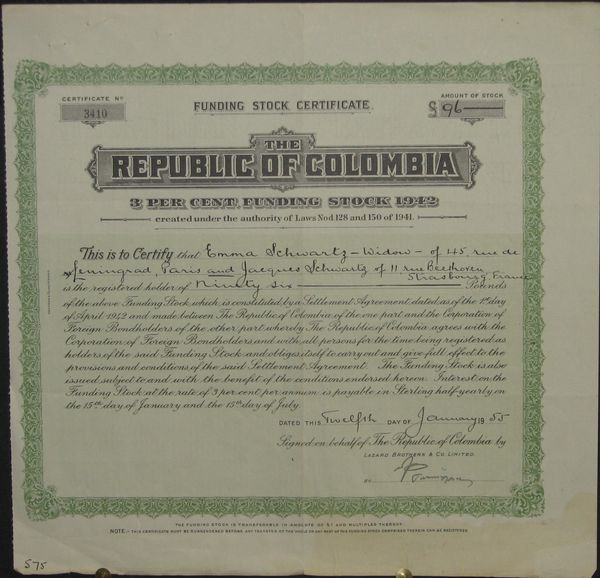 CERTIFICATE Nº
3410
FUNDING STOCK CERTIFICATE.
AMOUNT OF STOCK
£ 96
THE
REPUBLIC OF COLOMBIA
3 PER CENT. FUNDING STOCK 1942
created under the authority of Laws Nos. 128 and 150 of 1941.
This is to Certify that Emma Schwartz - Widow - of 145, rue de
Leningrad, Paris and Jacques Schwartz of 11 rue Beethoven,
Strasbourg, France
is the registered holder of Ninety six Pounds
of the above Funding Stock which is constituted by a Settlement Agreement dated as of the 1st day
of April 1942 and made between The Republic of Colombia of the one part and the Corporation of
Foreign Bondholders of the other part whereby The Republic of Colombia agrees with the
Corporation of Foreign Bondholders and with all persons for the time being registered as
holders of the said Funding Stock and obliges itself to carry out and give full effect to the
provisions and conditions of the said Settlement Agreement. The Funding Stock is also
issued subject to and with the benefit of the conditions endorsed hereon. Interest on the
Funding Stock at the rate of 3 per cent. per annum is payable in Sterling half-yearly on
the 15th day of January and the 15th day of July.
DATED THIS Twelfth DAY OF January 1955
Signed on behalf of The Republic of Colombia by
LAZARD BROTHERS & CO. LIMITED.
THE FUNDING STOCK IS TRANSFERABLE IN AMOUNTS OF £1 AND MULTIPLES THEREOF.
NOTE:- THIS CERTIFICATE MUST BE SURRENDERED BEFORE ANY TRANSFER OF THE WHOLE OR ANY PART OF THE FUNDING STOCK COMPRISED THEREIN CAN BE REGISTERED.
575